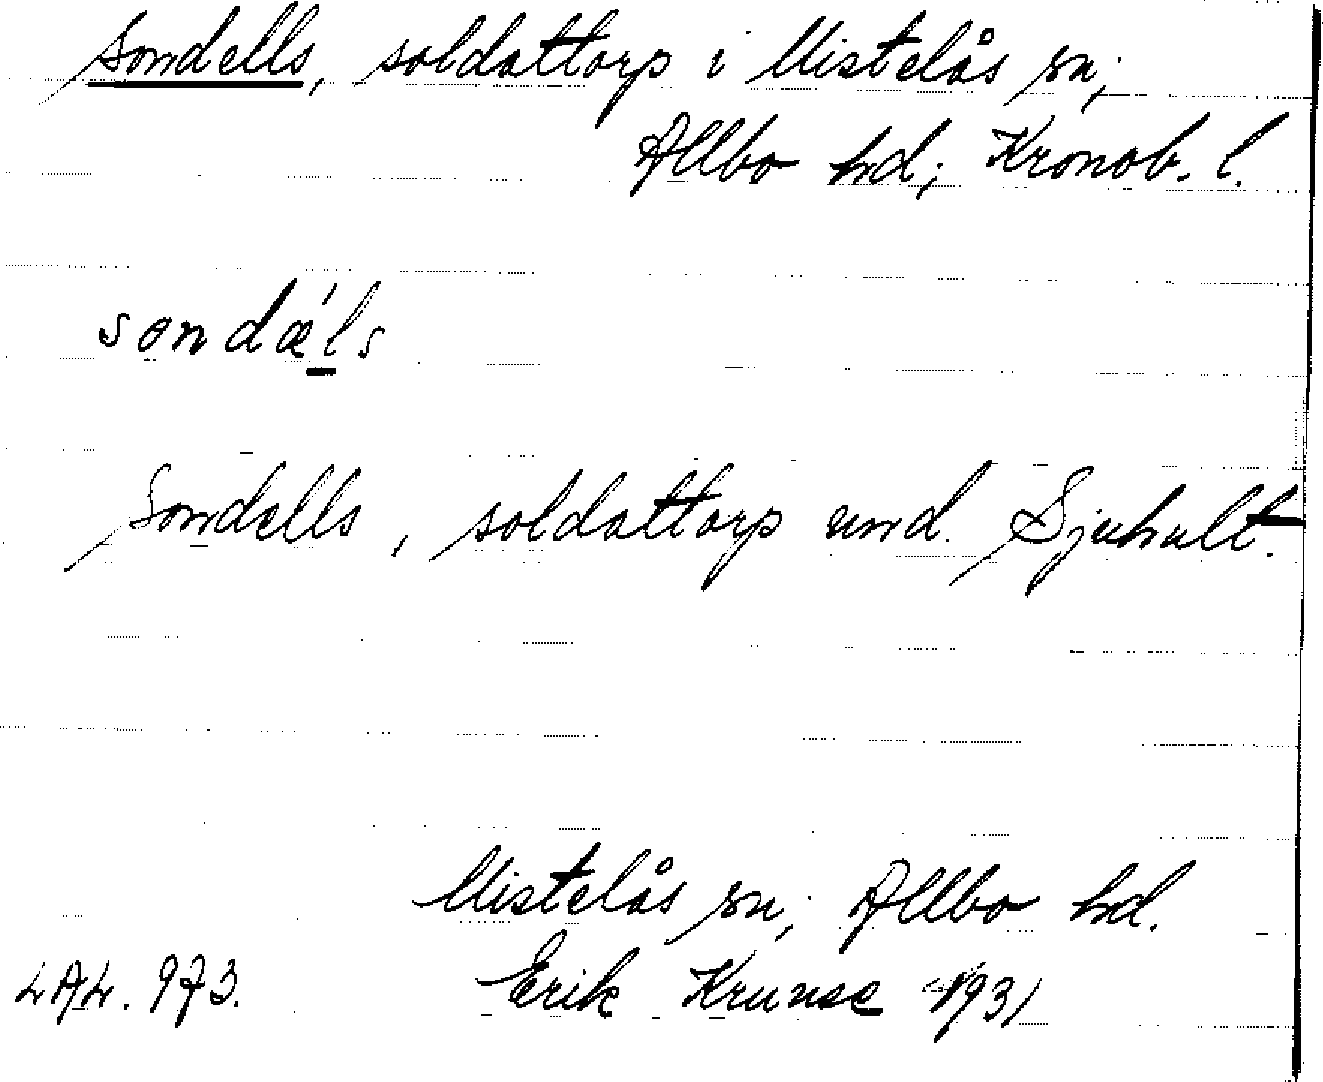 Sondells, soldattorp i Mistelås sn;
Allbo hd; Kronob. l.
sondæ̀ls
Sondells, soldattorp und. Sjuhult.
Mistelås sn; Allbo hd.
LAL. 973. Erik Krunse 1931